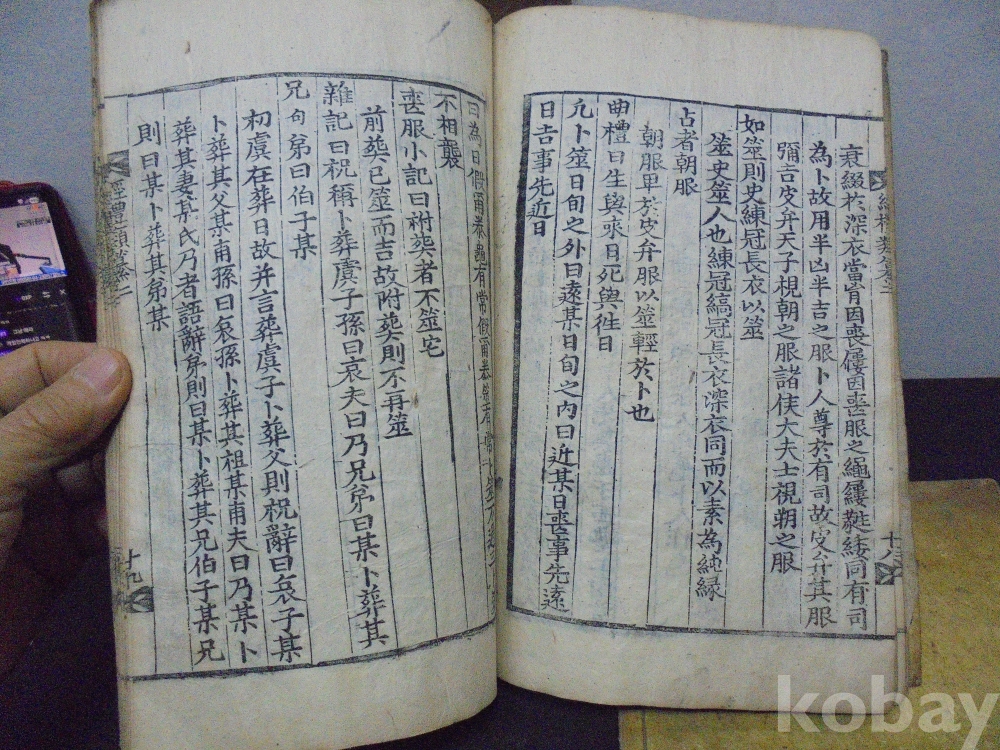 衰綴於深衣當肯因喪屨因喪服之繩屨蕤緌同有司
為卜故用半凶半吉之服卜人尊於有司故皮弁其服
彌吉皮弁天子視朝之服諸侯大夫士視朔之服
如筮則史練冠長衣以筮
筮史筮人也練冠縞冠長衣深衣同而以素為純緣
占者朝服
朝服卑於皮弁服以筮輕於卜也
曲禮曰生與來日死與往日
凡卜筮日旬之外曰遠某日旬之內曰近某日喪事先遠
日吉事先近日
十八
曰為日假爾泰龜有常假爾泰筮有常
不相襲
喪服小記曰祔葬者不筮宅
前葬已筮而吉故附葬則不再筮
雜記曰祝稱卜葬虞子孫曰哀夫曰乃兄弟曰某卜葬其
兄句弟曰伯子某
初虞在葬日故并言葬虞子卜葬父則祝辭曰哀子某
卜葬其父某甫孫曰哀孫卜葬其祖某甫夫曰乃某卜
葬其妻某氏乃者語辭弟則曰某卜葬其兄伯子某兄
則曰某卜葬其弟某
十九
kobay